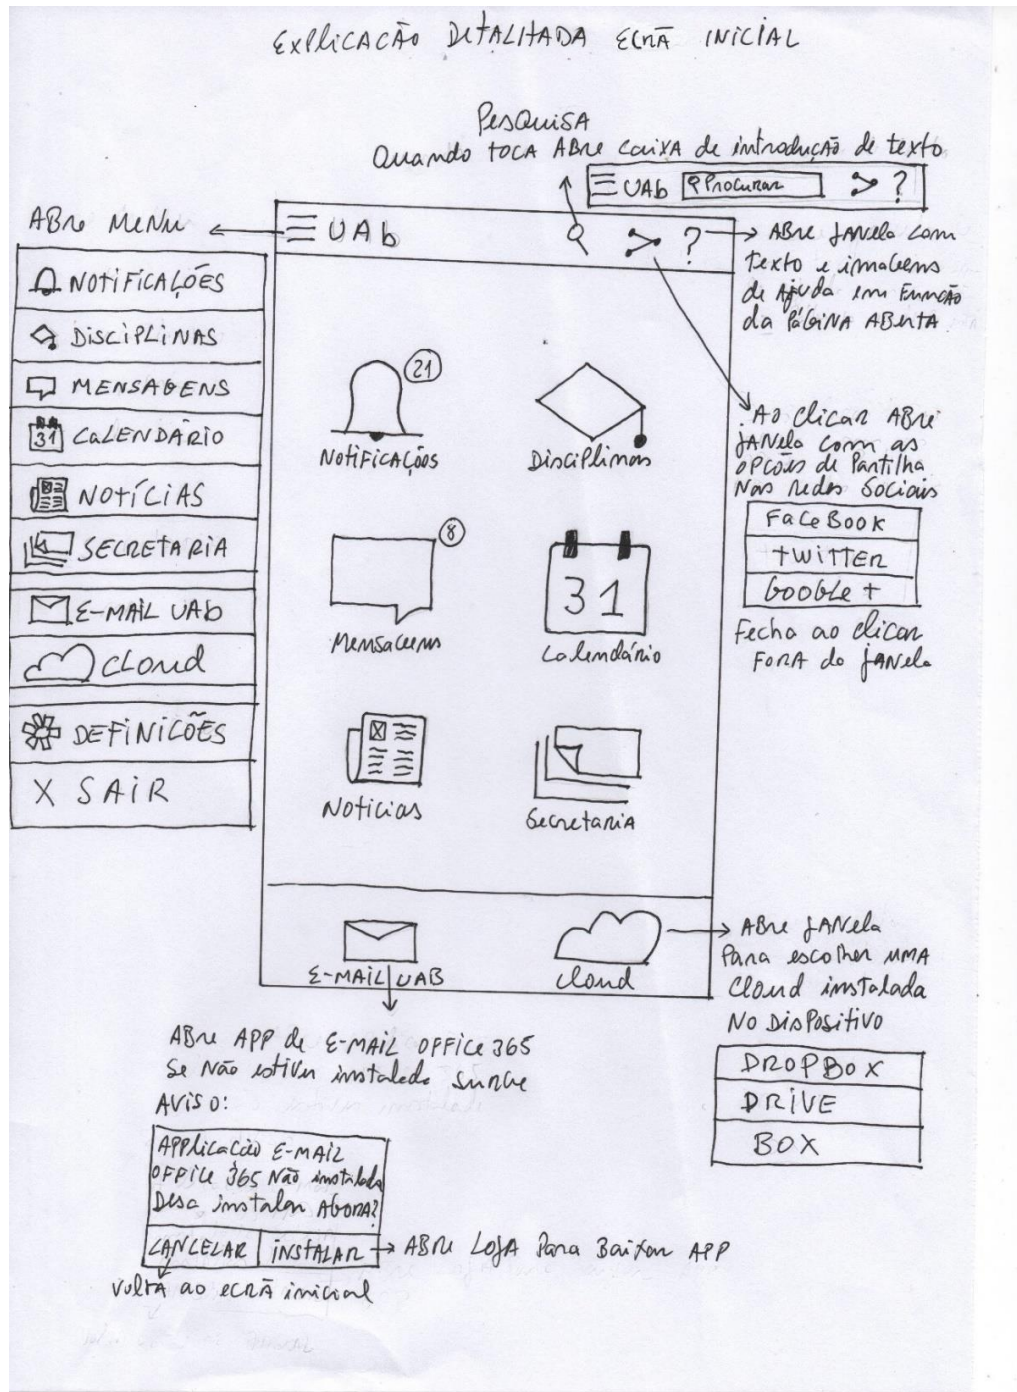 EXPLICACÃO DETALHADA ECRÃ INICIAL
PesQuisA
Quando TOCA ABre caixa de introdução de texto
UAb Procurar ?
ABre MeNu
UAb ?
ABre JANela com
texto e imagens
de Ajuda em Função
da PÁGiNA ABerta
NOTIFICAÇÕES
DISCIPLINAS
MENSAGENS
31 CALENDÁRIO
NOTÍCIAS
SECRETARIA
E-MAIL UAb
CLOUD
DEFINIÇÕES
X SAIR
21
Notificações
Disciplinas
8
Mensagens
31
Calendário
Noticias
Secretaria
E-MAIL UAB
Cloud
Ao clicar ABre
JANela com as
OPCões de Partilha
Nas redes Sociais
FaceBook
TWITTER
Google +
Fecha ao clicar
FORA da JANela
ABre JANela
Para escolher UMA
Cloud instalada
No DisPositivo
DROPBOX
DRIVE
BOX
ABre APP de E-MAIL OFFICE 365
Se Não estiver instalada surge
AVISO:
APPlicação E-MAIL
OFFICE 365 Não instalada
Desa instalar AGORA?
CANCELAR INSTALAR
ABRe LOJA Para Baixar APP
Volta ao ecrã inicial